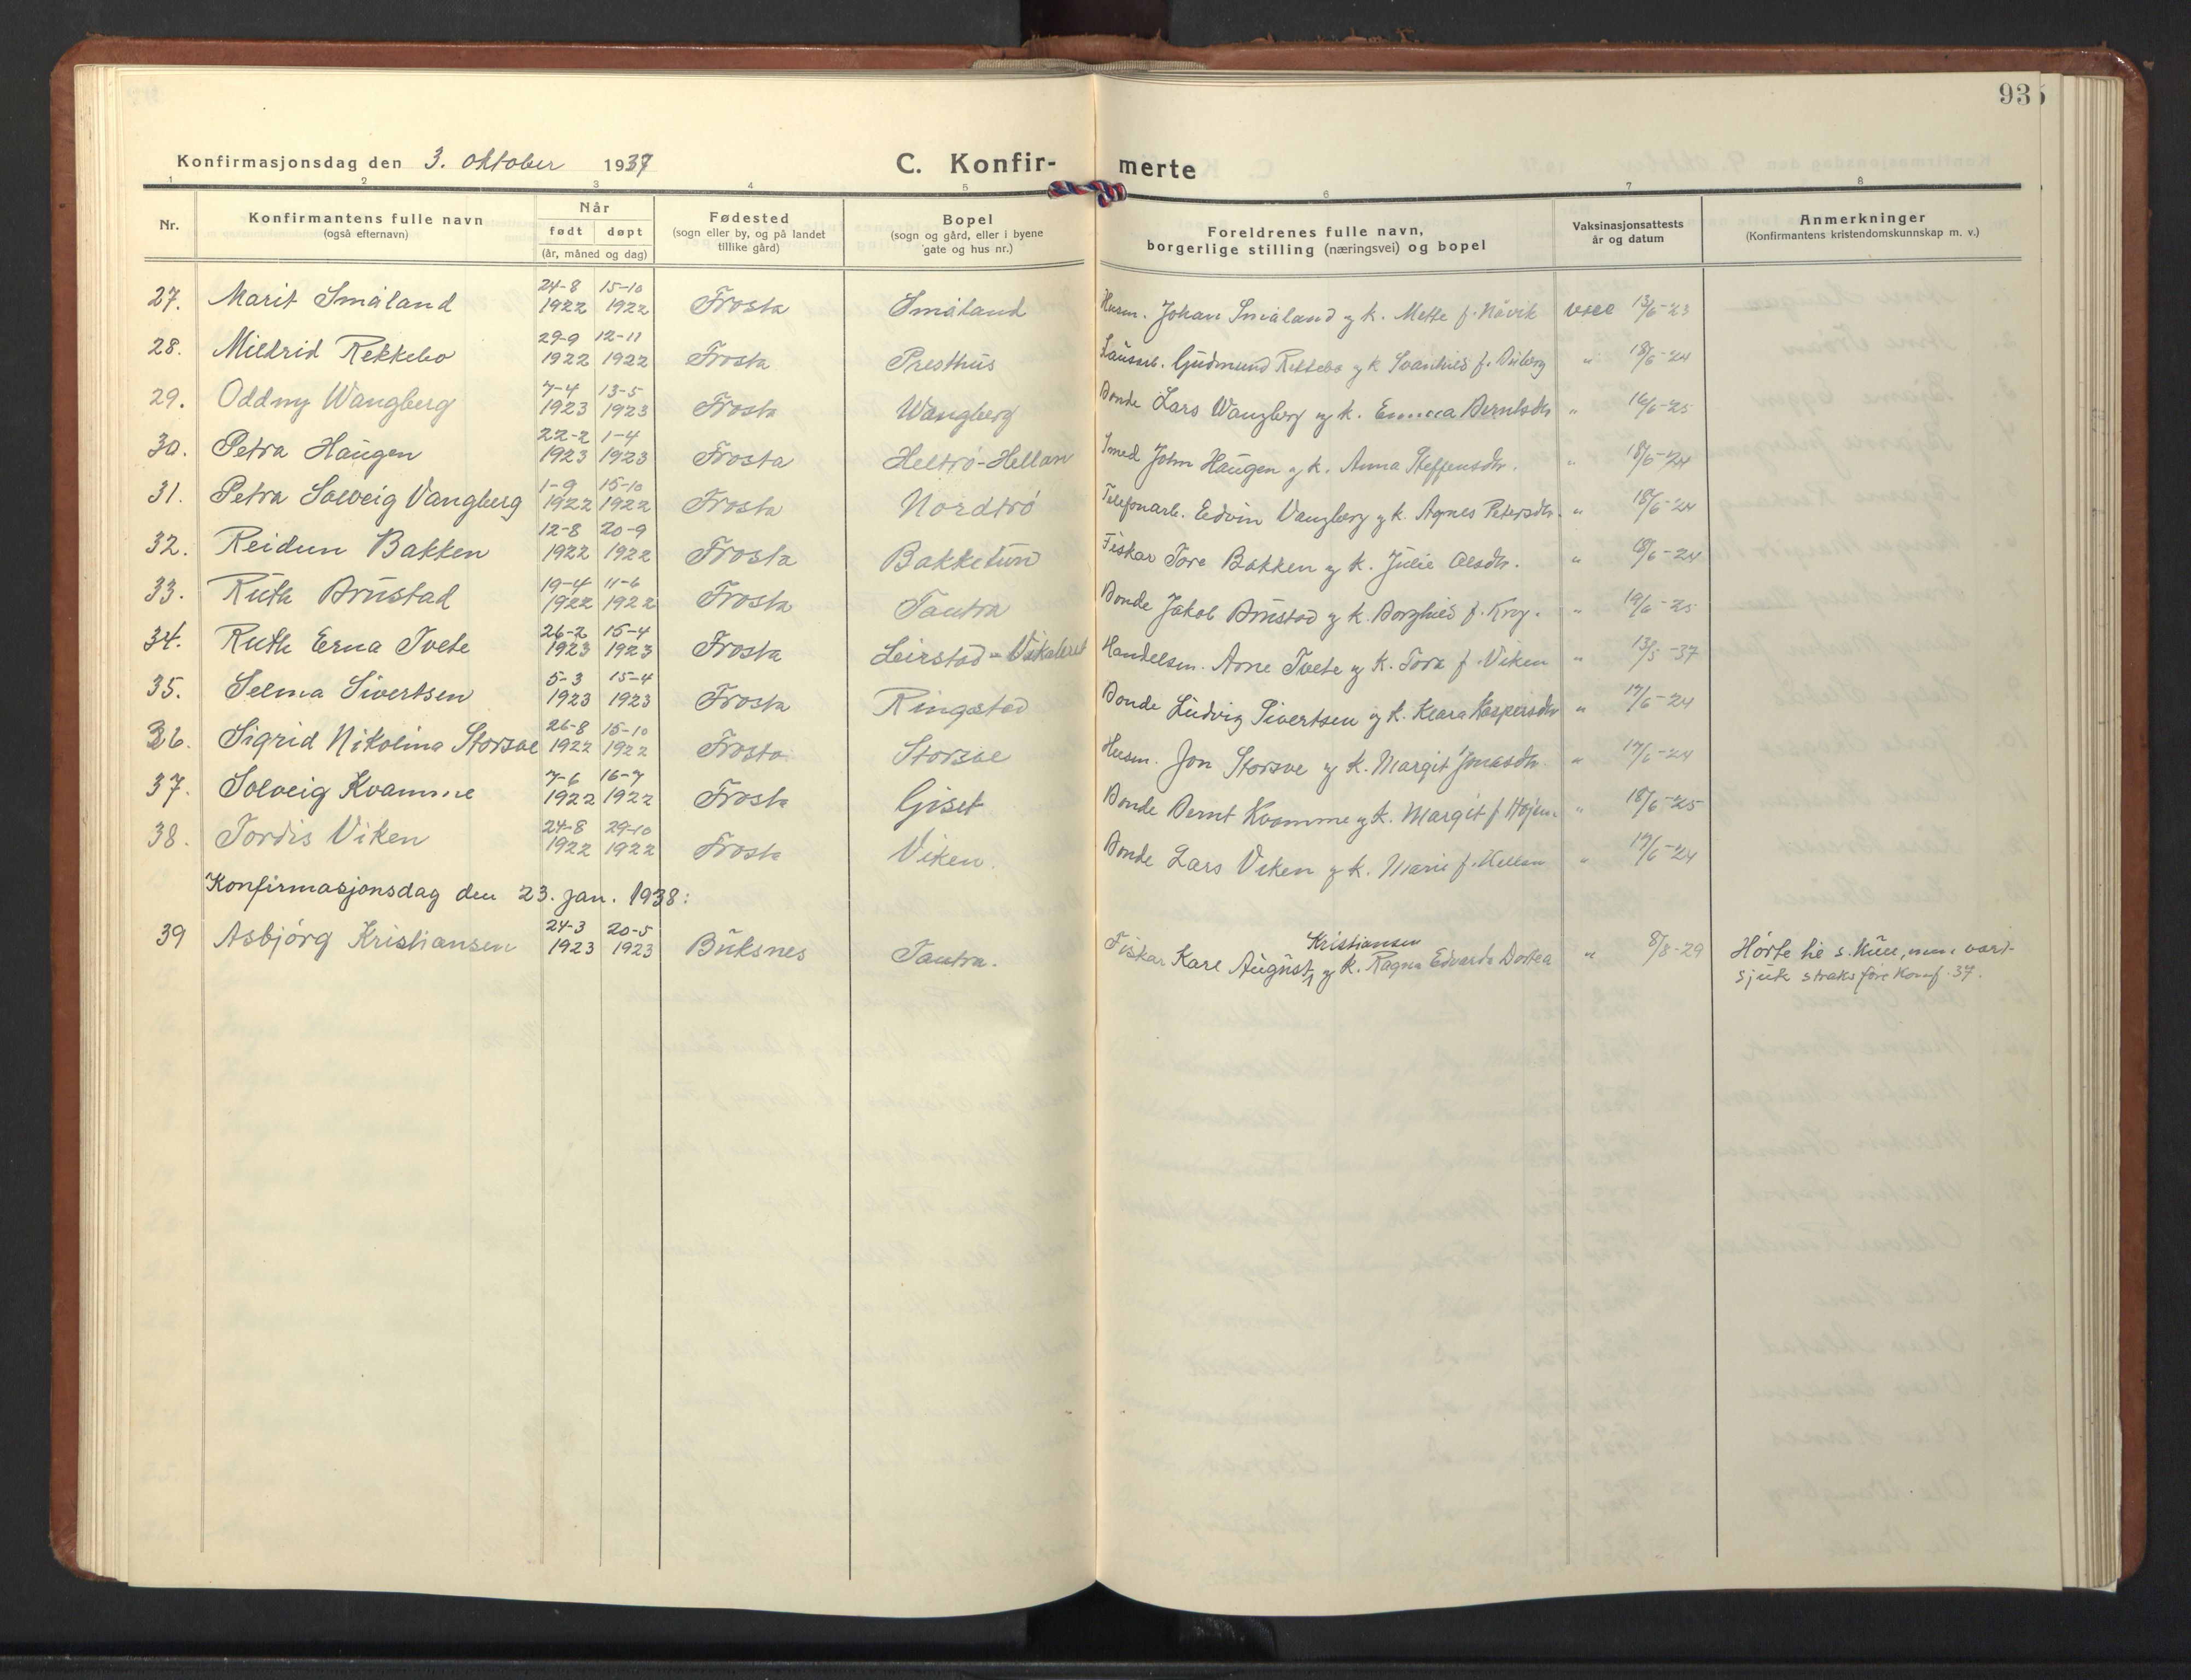 93
Konfirmasjonsdag den 3. oktober 1937
C. Konfir-
merte
1 2 3 4 5 6 7 8
Nr.
Konfirmantens fulle navn
(også efternavn)
Når
født døpt
(år, måned og dag)
Fødested
(sogn eller by, og på landet
tillike gård)
Bopel
(sogn og gård, eller i byene
gate og hus nr.)
Foreldrenes fulle navn,
borgerlige stilling (næringsvei) og bopel
Vaksinasjonsattests
år og datum
Anmerkninger
(Konfirmantens kristendomskunnskap m. v.)
24-8 15-10
27. Marit Småland 1922 1922 Frosta Småland Husm. Johan Småland og k. Mette f. Nåvik vacc 13/6-23
29-9 12-11
28. Mildrid Rekkebo 1922 1922 Frosta Presthus Gudmund Rekkebo og k. Svanhild f. " 18/6-24
7-4 13-5
29. Oddny Wangberg 1923 1923 Frosta Wangberg Bonde Lars Wangberg og k. Emma Berntsdtr "
22-2 1-4
30. Petra Haugen 1923 1923 Frosta Heltrø-Hellan Smed John Haugen og k. Anna Steffensdtr. " 18/6-24
1-9 15-10
31. Petra Solveig Vangberg 1922 1922 Frosta Nordtrø Telefonarb. Edvin Vangberg og k. Agnes Petersdtr. " 18/6-24
12-8 20-9
32. Reidun Bakken 1922 1922 Frosta Bakketun Fiskar Tore Bakken og k. Julie Olsdtr. " 18/6-24
19-4 11-6
33. Ruth Brustad 1922 1922 Frosta Tautra Bonde Jakob Brustad og k. Borghild f. " 19/6-25
26-2 15-4
34. Ruth Erna Tvete 1923 1923 Frosta Leirstad - Handelsm. Arne Tvete og k. Tora f. Viken " 13/5-37
5-3 15-4
35. Selma Sivertsen 1923 1923 Frosta Ringstad Bonde Ludvig Sivertsen og k. Klara Kaspersdtr " 17/6-24
26-8 15-10
36. Sigrid Nikolina Storsve 1922 1922 Frosta Storsve Husm. Jon Storsve og k. Margit Jonasdtr. " 17/6-24
7-6 16-7
37. Solveig Kvamme 1922 1922 Frosta Giset Bonde Bernt Kvamme og k. Margit f. " 18/6-25
24-8 29-10
38. Tordis Viken 1922 1922 Frosta Viken. Bonde Lars Viken og k. Marie f. Hellan " 17/6-24
Konfirmasjonsdag den 23. jan. 1938:
24-3 20-5 Kristiansen
39 Asbjörg Kristiansen 1923 1923 Buksnes Tautra. Fiskar Karl August og k. Ragna Edvarda Dortea " 8/8-29 Hørte til s. kull, men vart
sjuk straks føre konf. 37.